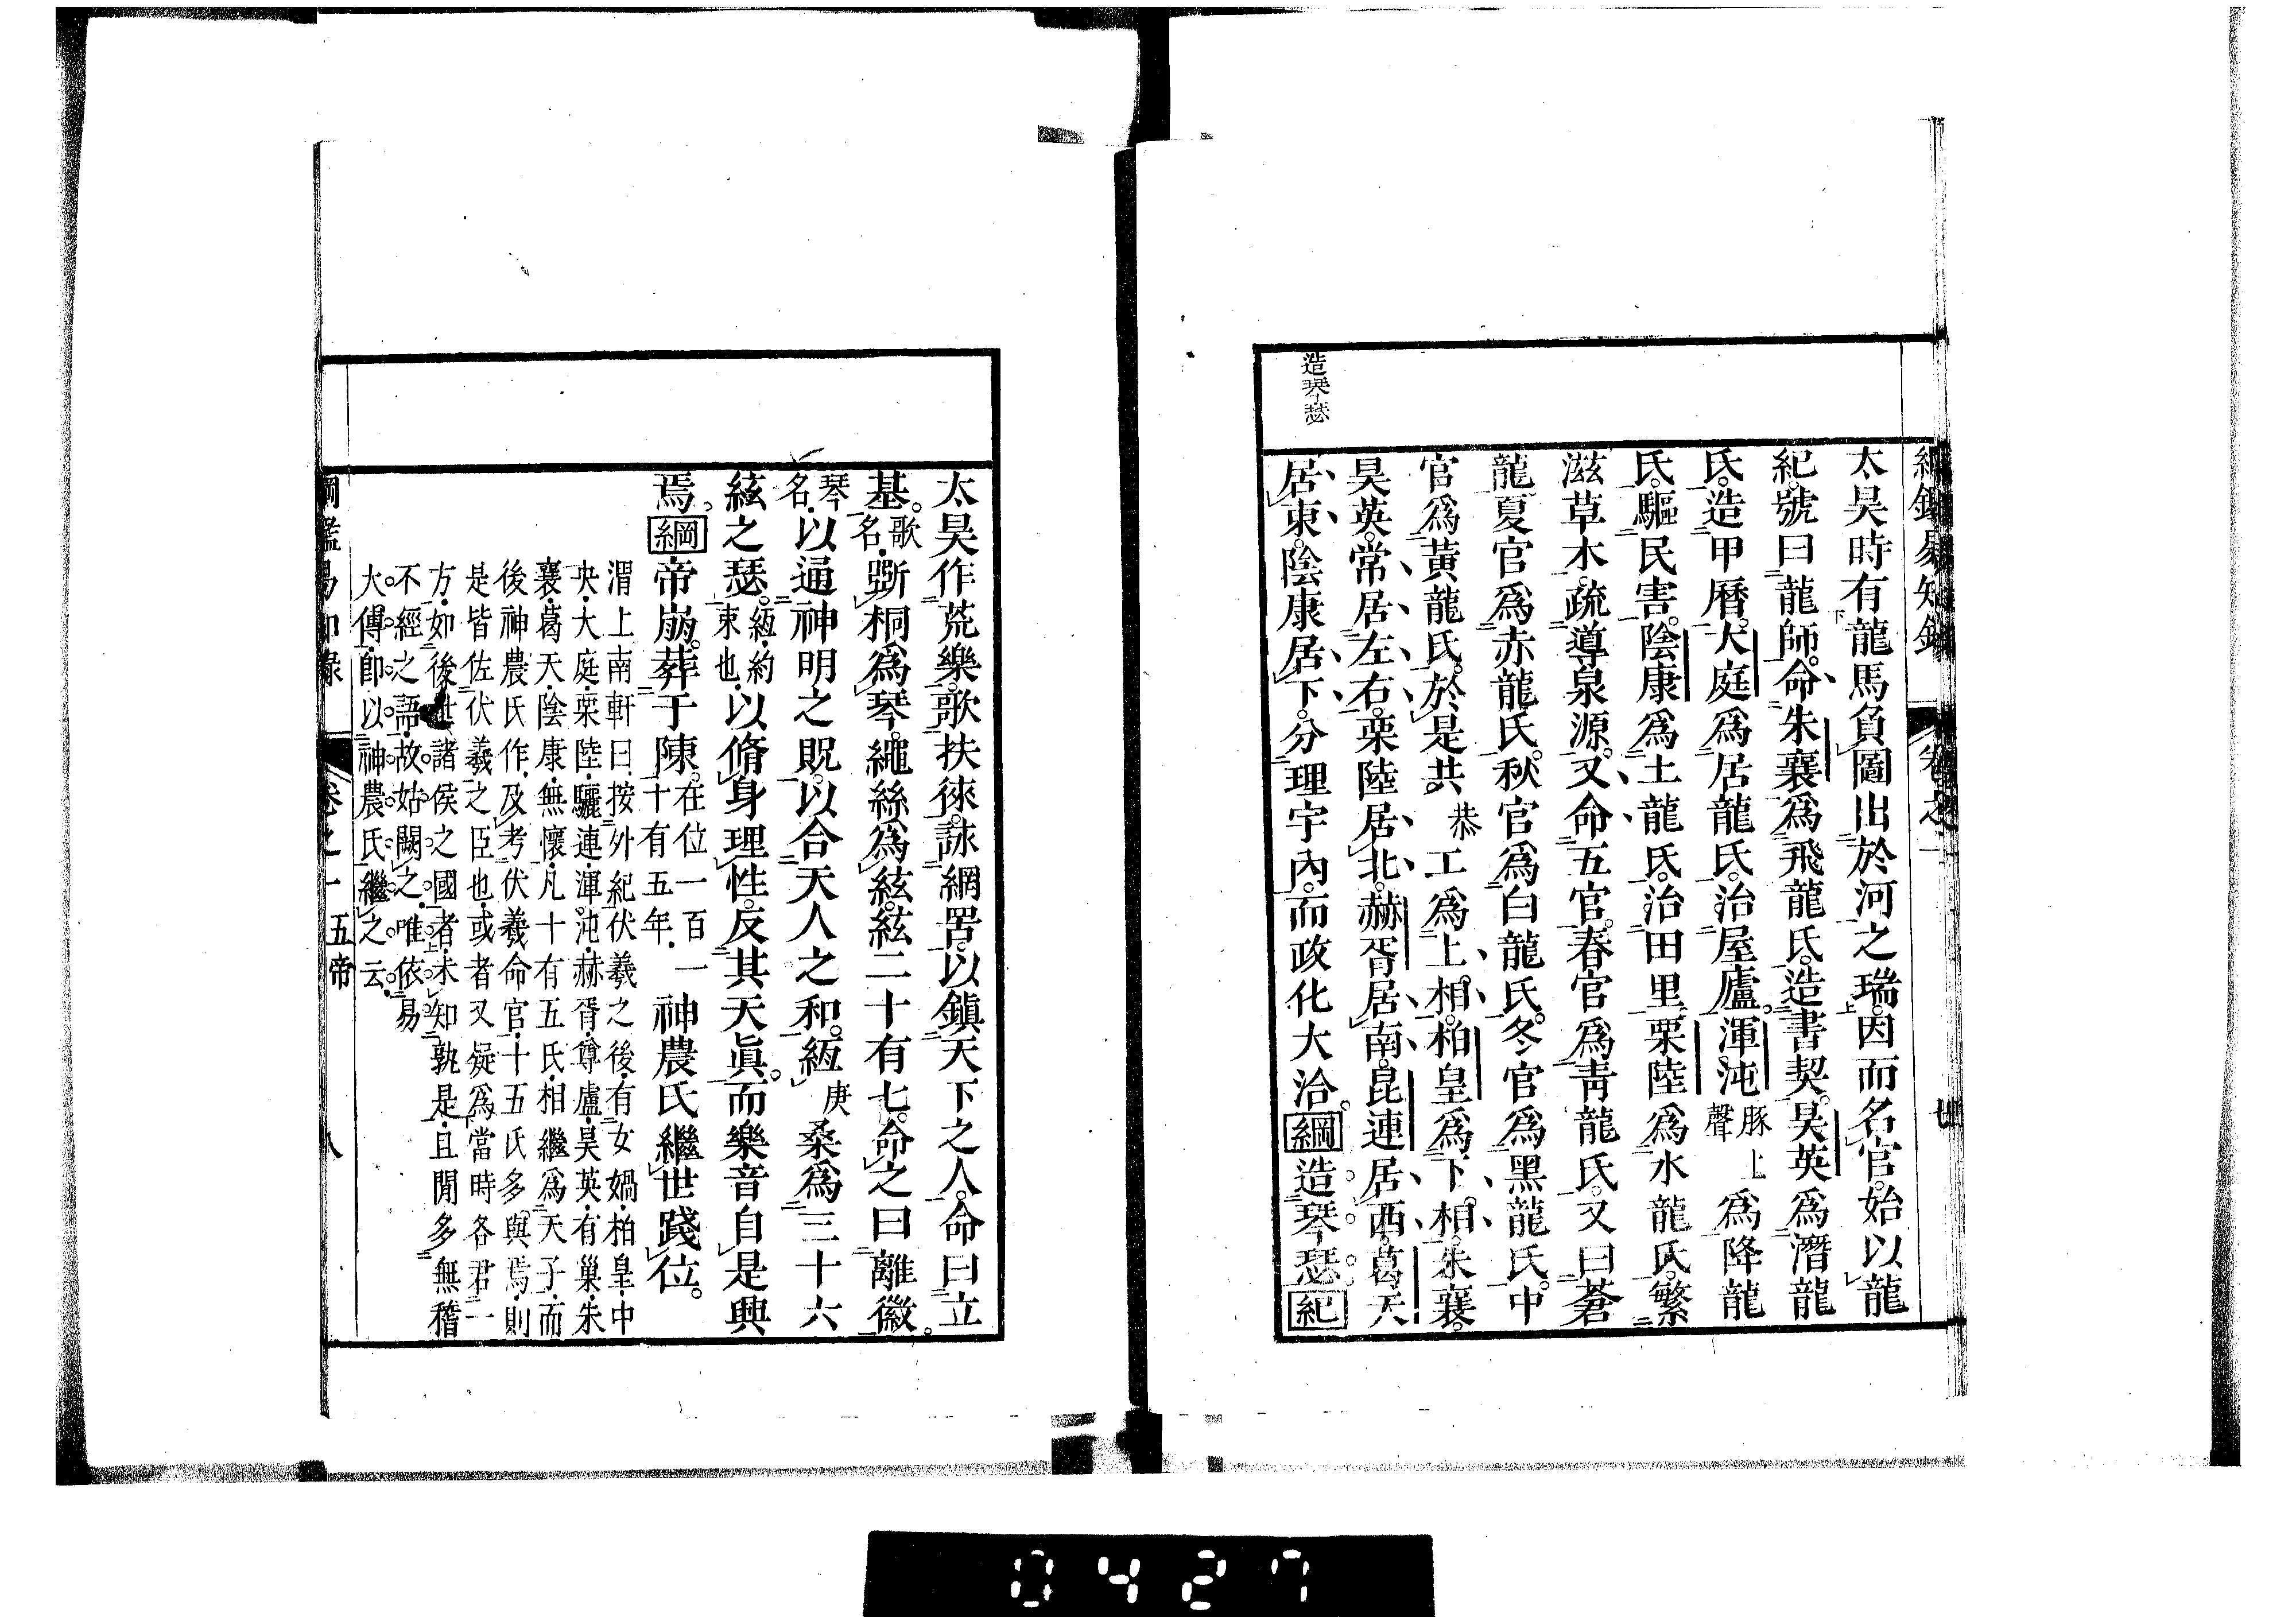 太昊時有龍馬負圖出於河之瑞。因而名官。始以龍
紀。號曰龍師。命朱襄爲飛龍氏。造書契。昊英爲潛龍
氏。造甲曆。大庭爲居龍氏。治屋廬。渾沌豚上聲爲降龍
氏。驅民害。陰康爲土龍氏。治田里。栗陸爲水龍氏。繁
滋草木。疏導泉源。又命五官。春官爲靑龍氏。又曰蒼
龍。夏官爲赤龍氏。秋官爲白龍氏。冬官爲黑龍氏。中
官爲黃龍氏。於是共恭工爲上相。柏皇爲下相。朱襄。
昊英。常居左右。栗陸居北。赫胥居南。昆連居西。葛天
居東。陰康居下。分理宇內。而政化大洽。綱造琴瑟。紀
造琴瑟
太昊作荒樂。歌扶徠。詠網罟。以鎭天下之人。命曰立
基。歌名。斲桐爲琴。繩絲爲絃。絃二十有七。命之曰離徽。
琴名。以通神明之貺。以合天人之和。絚庚桑爲三十六
絃之瑟。絚約束也。以脩身理性。反其天眞。而樂音自是興
焉。綱帝崩。葬于陳。在位一百一十有五年。神農氏繼世踐位。
渭上南軒曰。按外紀伏羲之後。有女媧。柏皇。中
央。大庭。栗陸。驪連。渾沌。赫胥。尊盧。昊英。有巢。朱
襄。葛天。陰康。無懷。凡十有五氏。相繼爲天子。而
後神農氏作。及考伏羲命官。十五氏多與焉。則
是皆佐伏羲之臣也。或者又疑爲當時各君一
方。如後世諸侯之國者。未知孰是。且間多無稽
不經之語。故姑闕之。唯依易
大傳。卽以神農氏繼之云。
綱鑑易知錄 卷之一 五帝 八